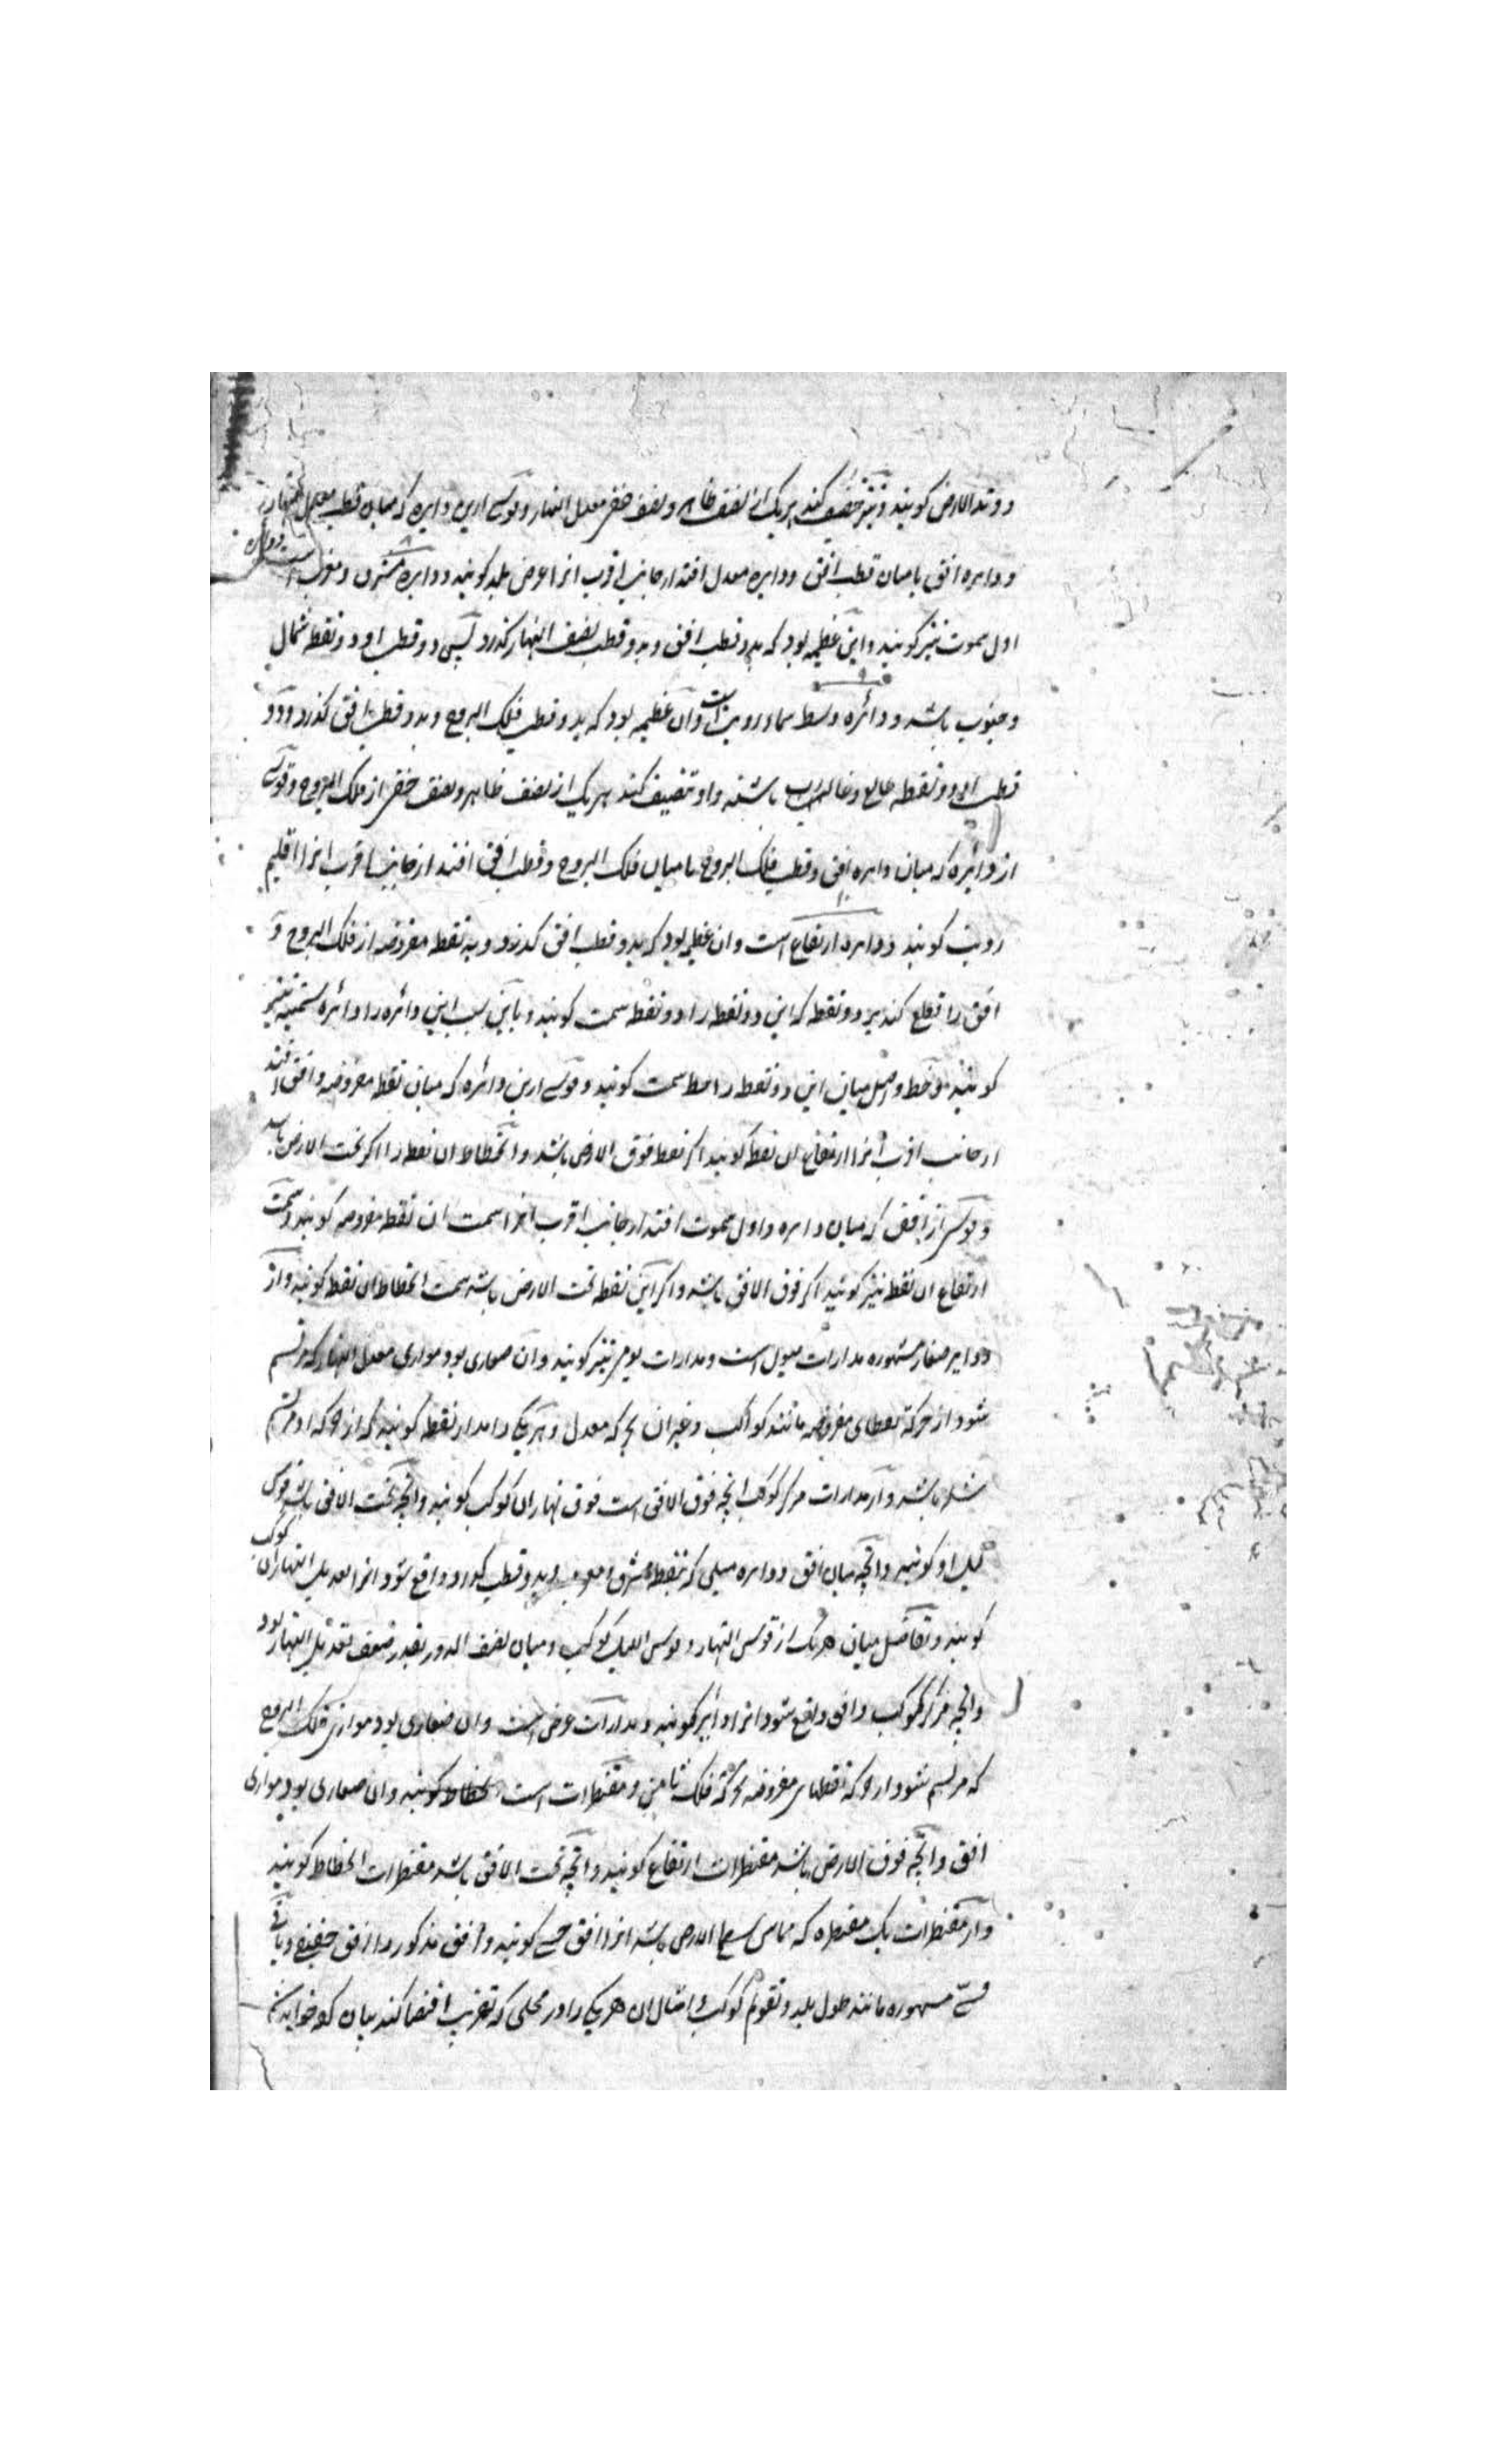 و وتد الارض کویند و تنصیف کند هریک از نصف ظاهر و نصف خفی معدل النهار و قوسی ازین دایره که میان قطب معدل النهار
و دایره افق یا میان قطب افق و دایره معدل افتد از جانب اقرب انرا عرض بلد کویند و دایره مشرق و مغرب است و دایره
اول سموت نیز کویند و این عظیمه بود که بدو قطب افق و بدو قطب نصف النهار کذرد پس دو قطب او دو نقطه شمال
و جنوب باشد و دائره وسط سماء رویت است و آن عظیمه بود که بدو قطب فلک البروج و بدو قطب افق کذرد و دو
قطب او دو نقطه طالع و غالب باشند و او تنصیف کند هریک از نصف ظاهر و نصف خفی از فلک البروج و قوسی
از دایره که میان دایره افق و قطب فلک البروج یا میان فلک البروج و قطب افق افتد از جانب اقرب انرا اقلیم
رویت کویند و دایره ارتفاع است و ان عظیمه بود که بدو قطب افق کذرد و به نقطه مفروضه از فلک البروج و
افق را قطع کند بر دو نقطه که این دو نقطه را دو نقطه سمت کویند و باین سبب این دائره را دائره سمتیه نیز
کویند و خط واصل میان این دو نقطه را خط سمت کویند و قوسی ازین دائره که میان نقطه مفروضه و افق افتد
از جانب اقرب انرا ارتفاع ان نقطه کویند اکر نقطه فوق الارض باشد و انحطاط ان نقطه را اکر تحت الارض باشد
و قوسی از افق که میان دایره و اول سموت افتد از جانب اقرب انرا سمت ان نقطه مفروضه کویند و سمت
ارتفاع ان نقطه نیز کویند اکر فوق الافق باشد و اکر این نقطه تحت الارض باشد سمت انحطاط ان نقطه کویند و از
دوایر صغار مشهوره مدارات میول است و مدارات یومی نیز کویند و ان صغاری بود موازی معدل النهار که مرتسم
شود از حرکة نقطهای مفروضه مانند کواکب و غیر ان بحرکه معدل و هر یکی را مدار نقطه کویند که از حرکه او مرتسم
شده باشد و از مدارات مرکز کوکب انچه فوق الافق است قوس نهار ان کوکب کویند و انچه تحت الافق باشد قوس
لیل او کویند و انچه میان افق و دایره میلی که بنقطه مشرق و مغرب و بدو قطب کذرد واقع شود انرا تعدیل النهار ان کوکب
کویند و تفاضل میان هریک از قوس النهار و قوس اللیل کوکب و میان نصف الدور بقدر ضعف تعدیل النهار بود
وانچه میان مرکز کوکب و افق واقع شود انرا دایر کویند و مدارات عرض است و ان صغاری بود موازی فلک البروج
که مرتسم شود از حرکه نقطهای مفروضه بحرکة فلک ثامن و مقنطرات است و ان صغاری بود موازی
افق و انچه فوق الارض باشد مقنطرات ارتفاع کویند و انچه تحت الافق باشد مقنطرات انحطاط کویند
و از مقنطرات یک مقنطره که مماس سطح الارض باشد انرا افق حسی کویند و افق مذکور را افق حقیقی و باقی
قسی مشهوره مانند طول بلد و تقویم کوکب و امثال ان هر یکی را در محلی که تقریب اقتضا کند بیان کرده خواهد شد